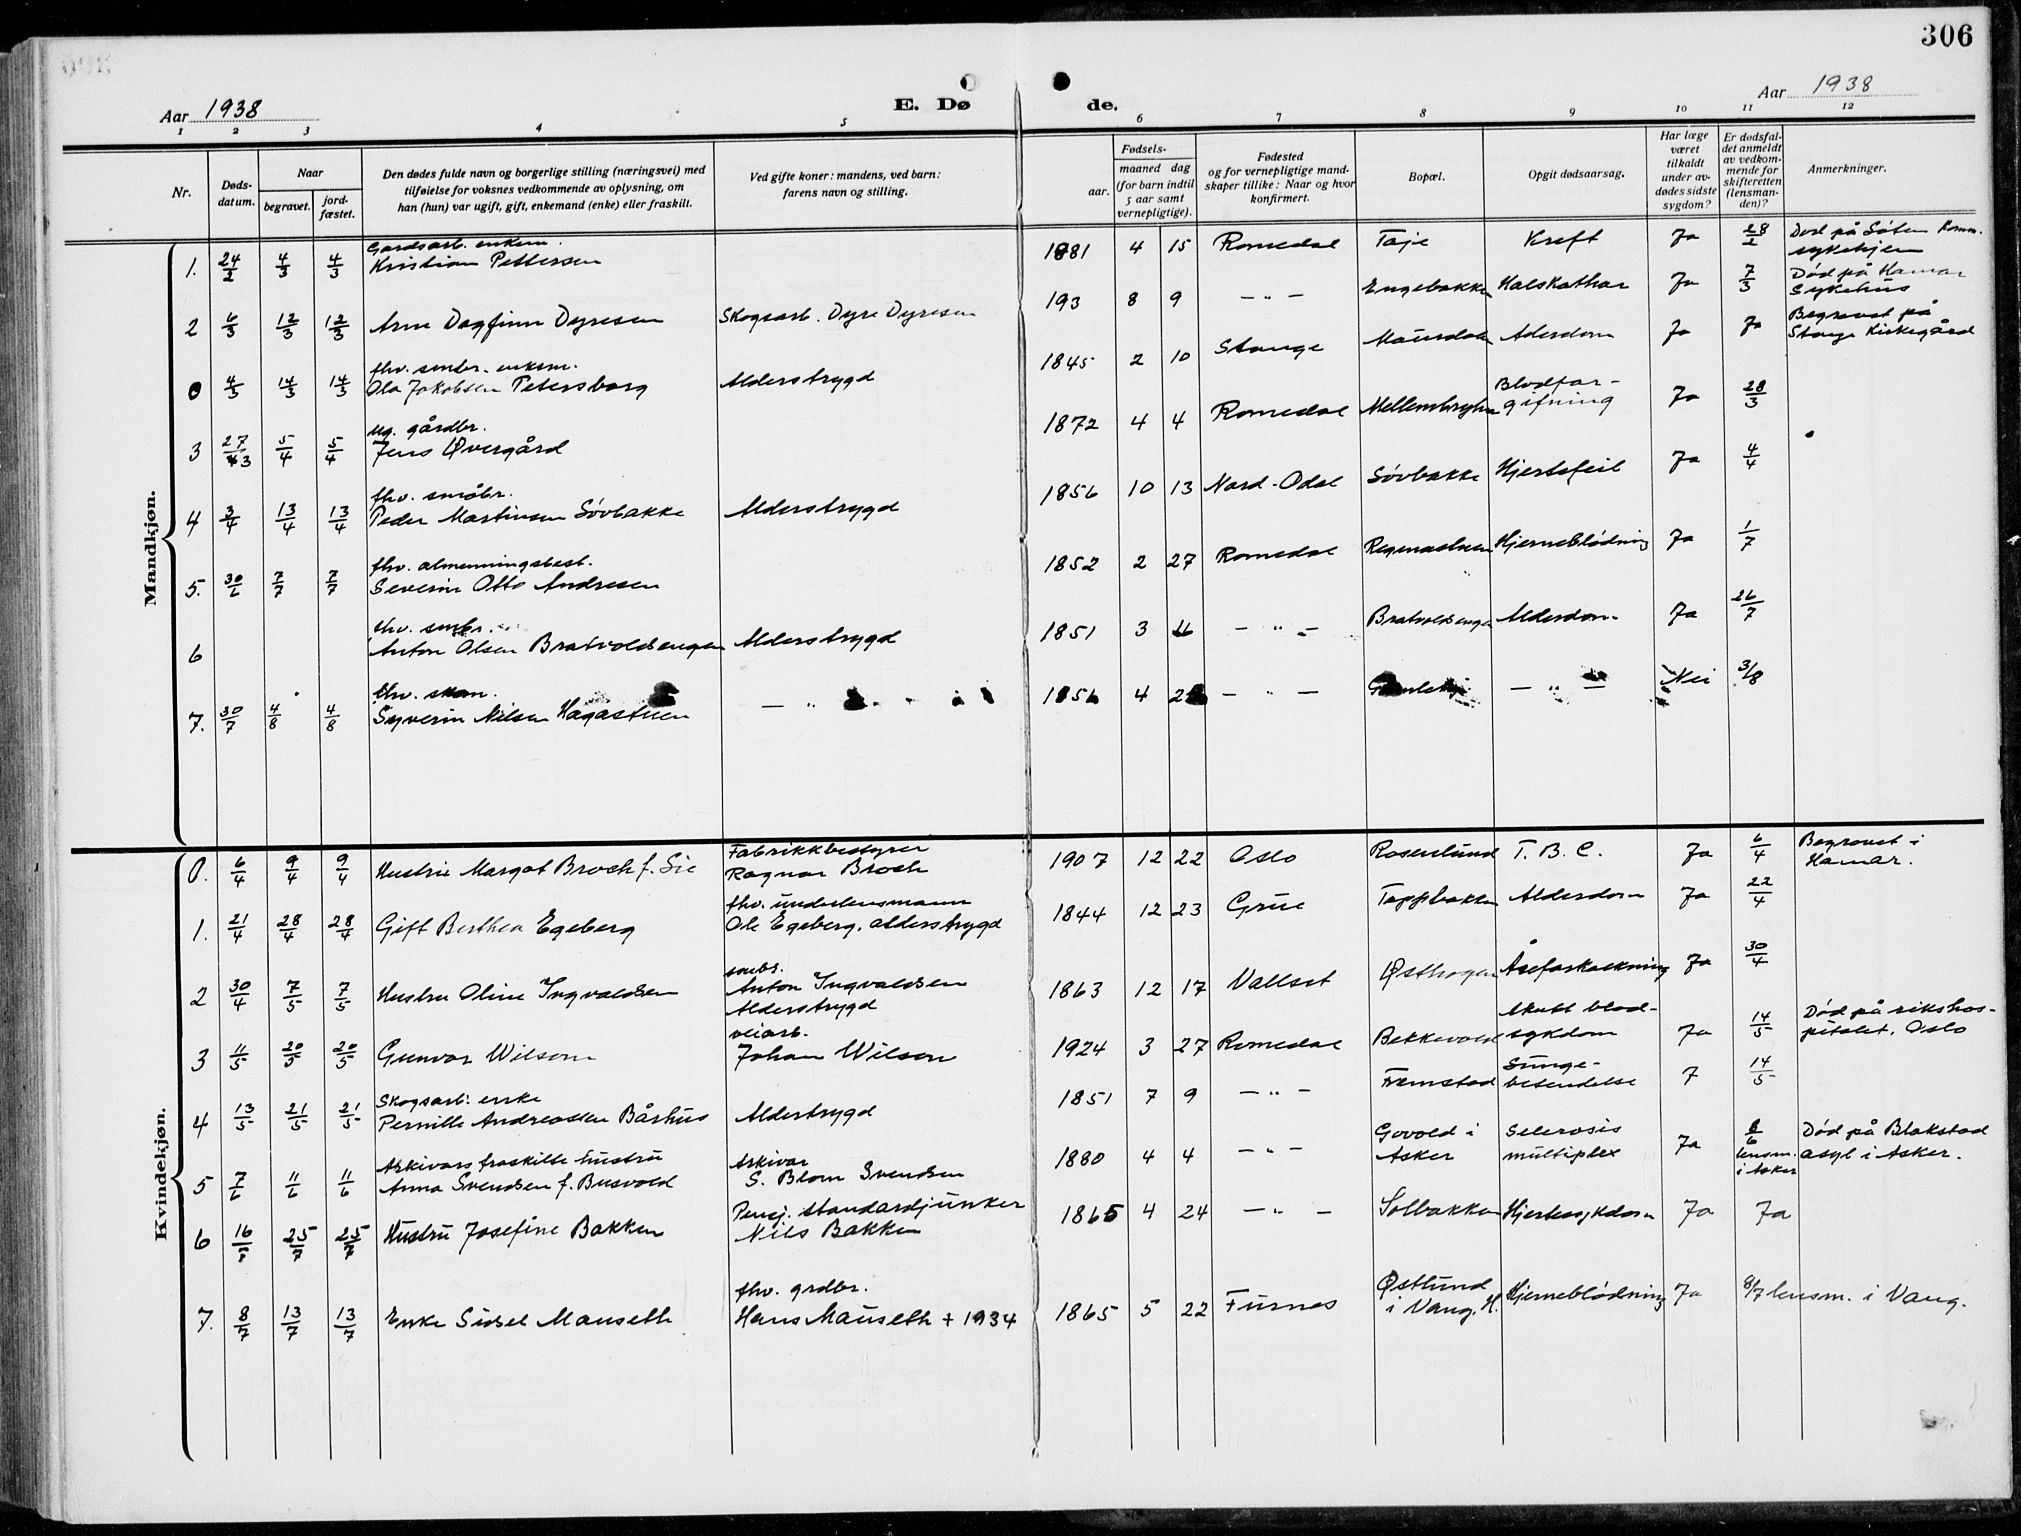 306
Aar 1938
E. Døde.
Aar 1938
1 2 3 4 5 6 7 8 9 10 11 12
Nr.
Døds-
datum.
Naar
begravet.
jord-
fæstet.
Den dødes fulde navn og borgerlige stilling (næringsvei) med
tilføielse for voksnes vedkommende av oplysning, om
han (hun) var ugift, gift, enkemand (enke) eller fraskilt.
Ved gifte koner: mandens, ved barn:
farens navn og stilling.
Fødsels-
aar.
maaned dag
(for barn indtil
5 aar samt
vernepligtige).
Fødested
og for vernepligtige mand-
skaper tillike: Naar og hvor
konfirmert.
Bopæl.
Opgit dødsaarsag.
Har læge
været
tilkaldt
under av-
dødes sidste
sygdom?
Er dødsfal-
det anmeldt
av vedkom-
mende for
skifteretten
(lensman-
den)?
Anmerkninger.
Mandkjøn.
Gardsarb. enkem.
1. 24/2 4/3 4/3 Kristian Pettersen 1881 4 15 Romedal Taje Kreft Ja 28/2 Død på Komm.
sykehjem
2 6/3 12/3 12/3 Arne Dagfinn Dyresen Skogsarb. Dyre Dyresen 193 8 9 — " — Engebakken Halskathar Ja 7/3 Død på Hamar
Sykehus
fhv. smbr. enkem.
0 4/3 14/3 14/3 Ola Jakobsen Petersborg Alderstrygd 1845 2 10 Stange Adersdom Ja Ja Begravet på
Stange Kirkegård
ug. gårdbr.
3 27/3 5/4 5/4 Jens Øvergård 1872 4 4 Romedal Blodfor-
gifning Ja 28/3
fhv. småbr.
4 3/4 13/4 13/4 Peder Martinsen Søvbakke Alderstrygd 1856 10 13 Nord-Odal Søvbakke Hjertefeil Ja 4/4
fhv. almenningsbest.
5. 30/6 7/7 7/7 Severin Otto Andresen 1852 2 27 Romedal Hjerneblødning Ja 1/7
fhv. smbr.
6 Anton Olsen Bratvoldsengen Alderstrygd 1851 3 — " — Bratvoldsengen Alderdom Ja 26/7
fhv.
7. 30/7 4/8 4/8 Syverin Nilsen Hagastuen — " — 1856 4 — " — — " — Nei 3/8
Kvindekjøn.
0. 6/4 9/4 9/4 Hustru Margot Broch f. Sie Fabrikkbestyrer
Ragnar Broch 1907 12 22 Oslo Rosenlund T. B. C. Ja 6/4 Begravet i
Hamar.
1. 21/4 28/4 28/4 Gift Berthea Egeberg fhv. underlensmann
Ole Egeberg, alderstrygd 1844 12 23 Grue Toppbakken Alderdom Ja 22/4
2 30/4 7/5 7/5 Hustru Oline Ingvaldsen smbr.
Anton Ingvaldsen
Alderstrygd 1863 12 17 Vallset Østhagen Åreforkalkning Ja 30/4
3 11/5 20/5 20/5 Gunvor Wilson veiarb.
Johan Wilson 1924 3 27 Romedal Bekkevold Akutt blod-
sykdom Ja 14/5 Død på rikshos-
pitalet, Oslo
Skogsarb. enke
4 13/5 21/5 21/5 Pernille Andreassen Bårhus Alderstrygd 1851 7 9 — " — Fremstad Lunge-
betendelse 7 14/5
Arkivars fraskilte hustru
5 7/6 11/6 11/6 Anna Svendsen f. Busvold Arkivar
S. Blom Svendsen 1880 4 4 — " — Govold i
Asker Sclerosis
multiplex Ja 8/6
lensm.
i Asker Død på Blakstad
asyl i Asker.
6 16/7 25/7 25/7 Hustru Josefine Bakken Pensj. standardjunker
Nils Bakken 1865 4 24 — " — Solbakken Hjertesykdom Ja Ja
7. 8/7 13/7 13/7 Enke Sidsel Mauseth fhv. grdbr.
Hans Mauseth + 1934 1865 5 22 Furnes Østlund
i Vang, H. Hjerneblødning Ja 8/7 lensm. i Vang.